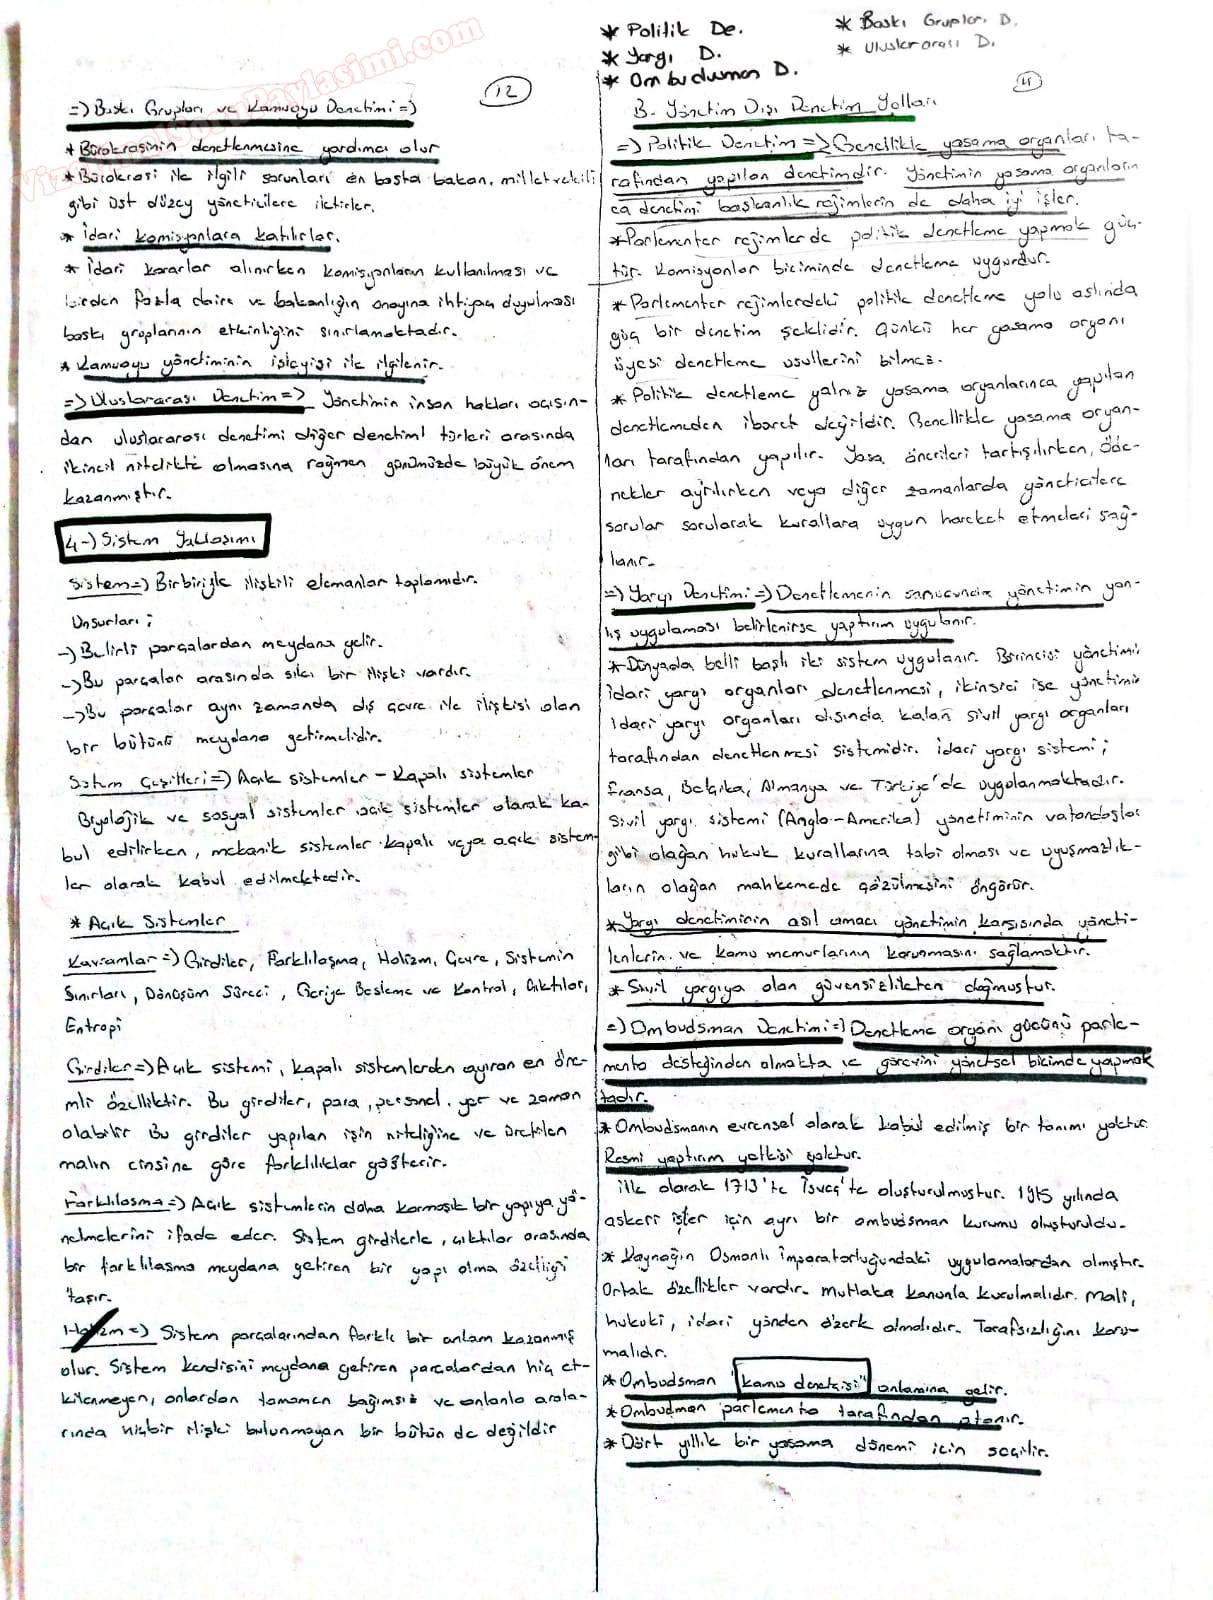 VizeFinalSoruPaylasimi.com
12
=) Baskı Grupları ve Kamuoyu Denetimi =)
* Bürokrasinin denetlenmesine yardımcı olur
* Bürokrasi ile ilgili sorunları en başta bakan, milletvekili
gibi üst düzey yöneticilere iletirler.
* İdari komisyonlara katılırlar.
* İdari kararlar alınırken komisyonların kullanılması ve
birden fazla daire ve bakanlığın onayına ihtiyaç duyulması
baskı gruplarının etkinliğini sınırlamaktadır.
* Kamuoyu yönetiminin işleyişi ile ilgilenir.
=) Uluslararası Denetim =) Yönetimin insan hakları açısın-
dan uluslararası denetimi diğer denetim türleri arasında
ikincil nitelikte olmasına rağmen günümüzde büyük önem
kazanmıştır.
4-) Sistem Yaklaşımı
Sistem =) Birbiriyle ilişkili elemanlar toplamıdır.
Unsurları ;
-) Belirli parçalardan meydana gelir.
-) Bu parçalar arasında sıkı bir ilişki vardır.
-) Bu parçalar aynı zamanda dış çevre ile ilişkisi olan
bir bütünü meydana getirmelidir.
Sistem Çeşitleri =) Açık sistemler - Kapalı sistemler
Biyolojik ve sosyal sistemler açık sistemler olarak ka-
bul edilirken, mekanik sistemler kapalı veya açık sistem-
ler olarak kabul edilmektedir.
* Açık Sistemler
Kavramlar =) Girdiler, Farklılaşma, Holizm, Çevre, Sistemin
Sınırları, Dönüşüm Süreci, Geriye Besleme ve Kontrol, Çıktılar,
Entropi
Girdiler =) Açık sistemi, kapalı sistemlerden ayıran en öne-
mli özelliktir. Bu girdiler, para, personel, yer ve zaman
olabilir Bu girdiler yapılan işin niteliğine ve üretilen
malın cinsine göre farklılıklar gösterir.
Farklılaşma =) Açık sistemlerin daha karmaşık bir yapıya yö-
nelmelerini ifade eder. Sistem girdilerle, çıktılar arasında
bir farklılaşma meydana getiren bir yapı olma özelliği
taşır.
Holizm =) Sistem parçalarından farklı bir anlam kazanmış
olur. Sistem kendisini meydana getiren parçalardan hiç et-
kilenmeyen, onlardan tamamen bağımsız ve onlarla arala-
rında hiçbir ilişki bulunmayan bir bütün de değildir
* Politik De.
* Yargı D.
* Ombudusman D.
* Baskı Grupları D.
* Uluslararası D.
11
B- Yönetim Dışı Denetim Yolları
=) Politik Denetim =) Genellikle yasama organları ta-
rafından yapılan denetimdir. Yönetimin yasama organların
ca denetimi başkanlık rejimlerin de daha iyi işler.
* Parlementer rejimlerde politik denetleme yapmak güç-
tür. Komisyonlar biciminde denetleme uygundur.
* Parlementer rejimlerdeki politik denetleme yolu aslında
güç bir denetim şeklidir. Çünkü her yasama organı
üyesi denetleme usullerini bilmez.
* Politik denetleme yalnız yasama organlarınca yapılan
denetlemeden ibaret değildir. Genellikle yasama organ-
ları tarafından yapılır. Yasa önerileri tartışılırken, Öde-
nekler ayrılırken veya diğer zamanlarda yöneticilere
sorular sorularak kurallara uygun hareket etmeleri sağ-
lanır.
=) Yargı Denetimi =) Denetlemenin sonucunda yönetimin yan-
lış uygulaması belirlenirse yaptırım uygulanır.
* Dünyada belli başlı iki sistem uygulanır. Birincisi yönetimi
idari yargı organları denetlenmesi, ikinsici ise yönetimin
idari yargı organları dışında kalan sivil yargı organları
tarafından denetlenmesi sistemidir. İdari yargı sistemi ;
Fransa, Belçika, Almanya ve Türkiye'de uygulanmaktadır.
Sivil yargı sistemi (Anglo-Amerika) yönetiminin vatandaşlar
gibi olağan hukuk kurallarına tabi olması ve uyuşmazlık-
ların olağan mahkemede çözülmesini öngörür.
* Yargı denetiminin asıl amacı yönetimin karşısında yöneti-
lenlerin ve kamu memurlarının korunmasını sağlamaktır.
* Sivil yargıya olan güvensizlikten doğmuştur.
=) Ombudsman Denetimi =) Denetleme organı gücünü parle-
mento desteğinden almakta ve görevini yönetsel bicimde yapmak
tadır.
* Ombudsmanın evrensel olarak kabul edilmiş bir tanımı yoktur.
Resmi yaptırım yetkisi yoktur.
İlk olarak 1713'te İsveç'te oluşturulmuştur. 1915 yılında
askeri işler için ayrı bir ombudsman kurumu oluşturuldu.
* Kaynağın Osmanlı İmparatorluğundaki uygulamalardan almıştır.
Ortak özellikler vardır. Mutlaka kanunla kurulmalıdır. Mali,
hukuki, idari yönden özerk olmalıdır. Tarafsızlığını koru-
malıdır.
* Ombudsman "kamu denetçisi" anlamına gelir.
* Ombudman parlemento tarafından atanır.
* Dört yıllık bir yasama dönemi icin seçilir.